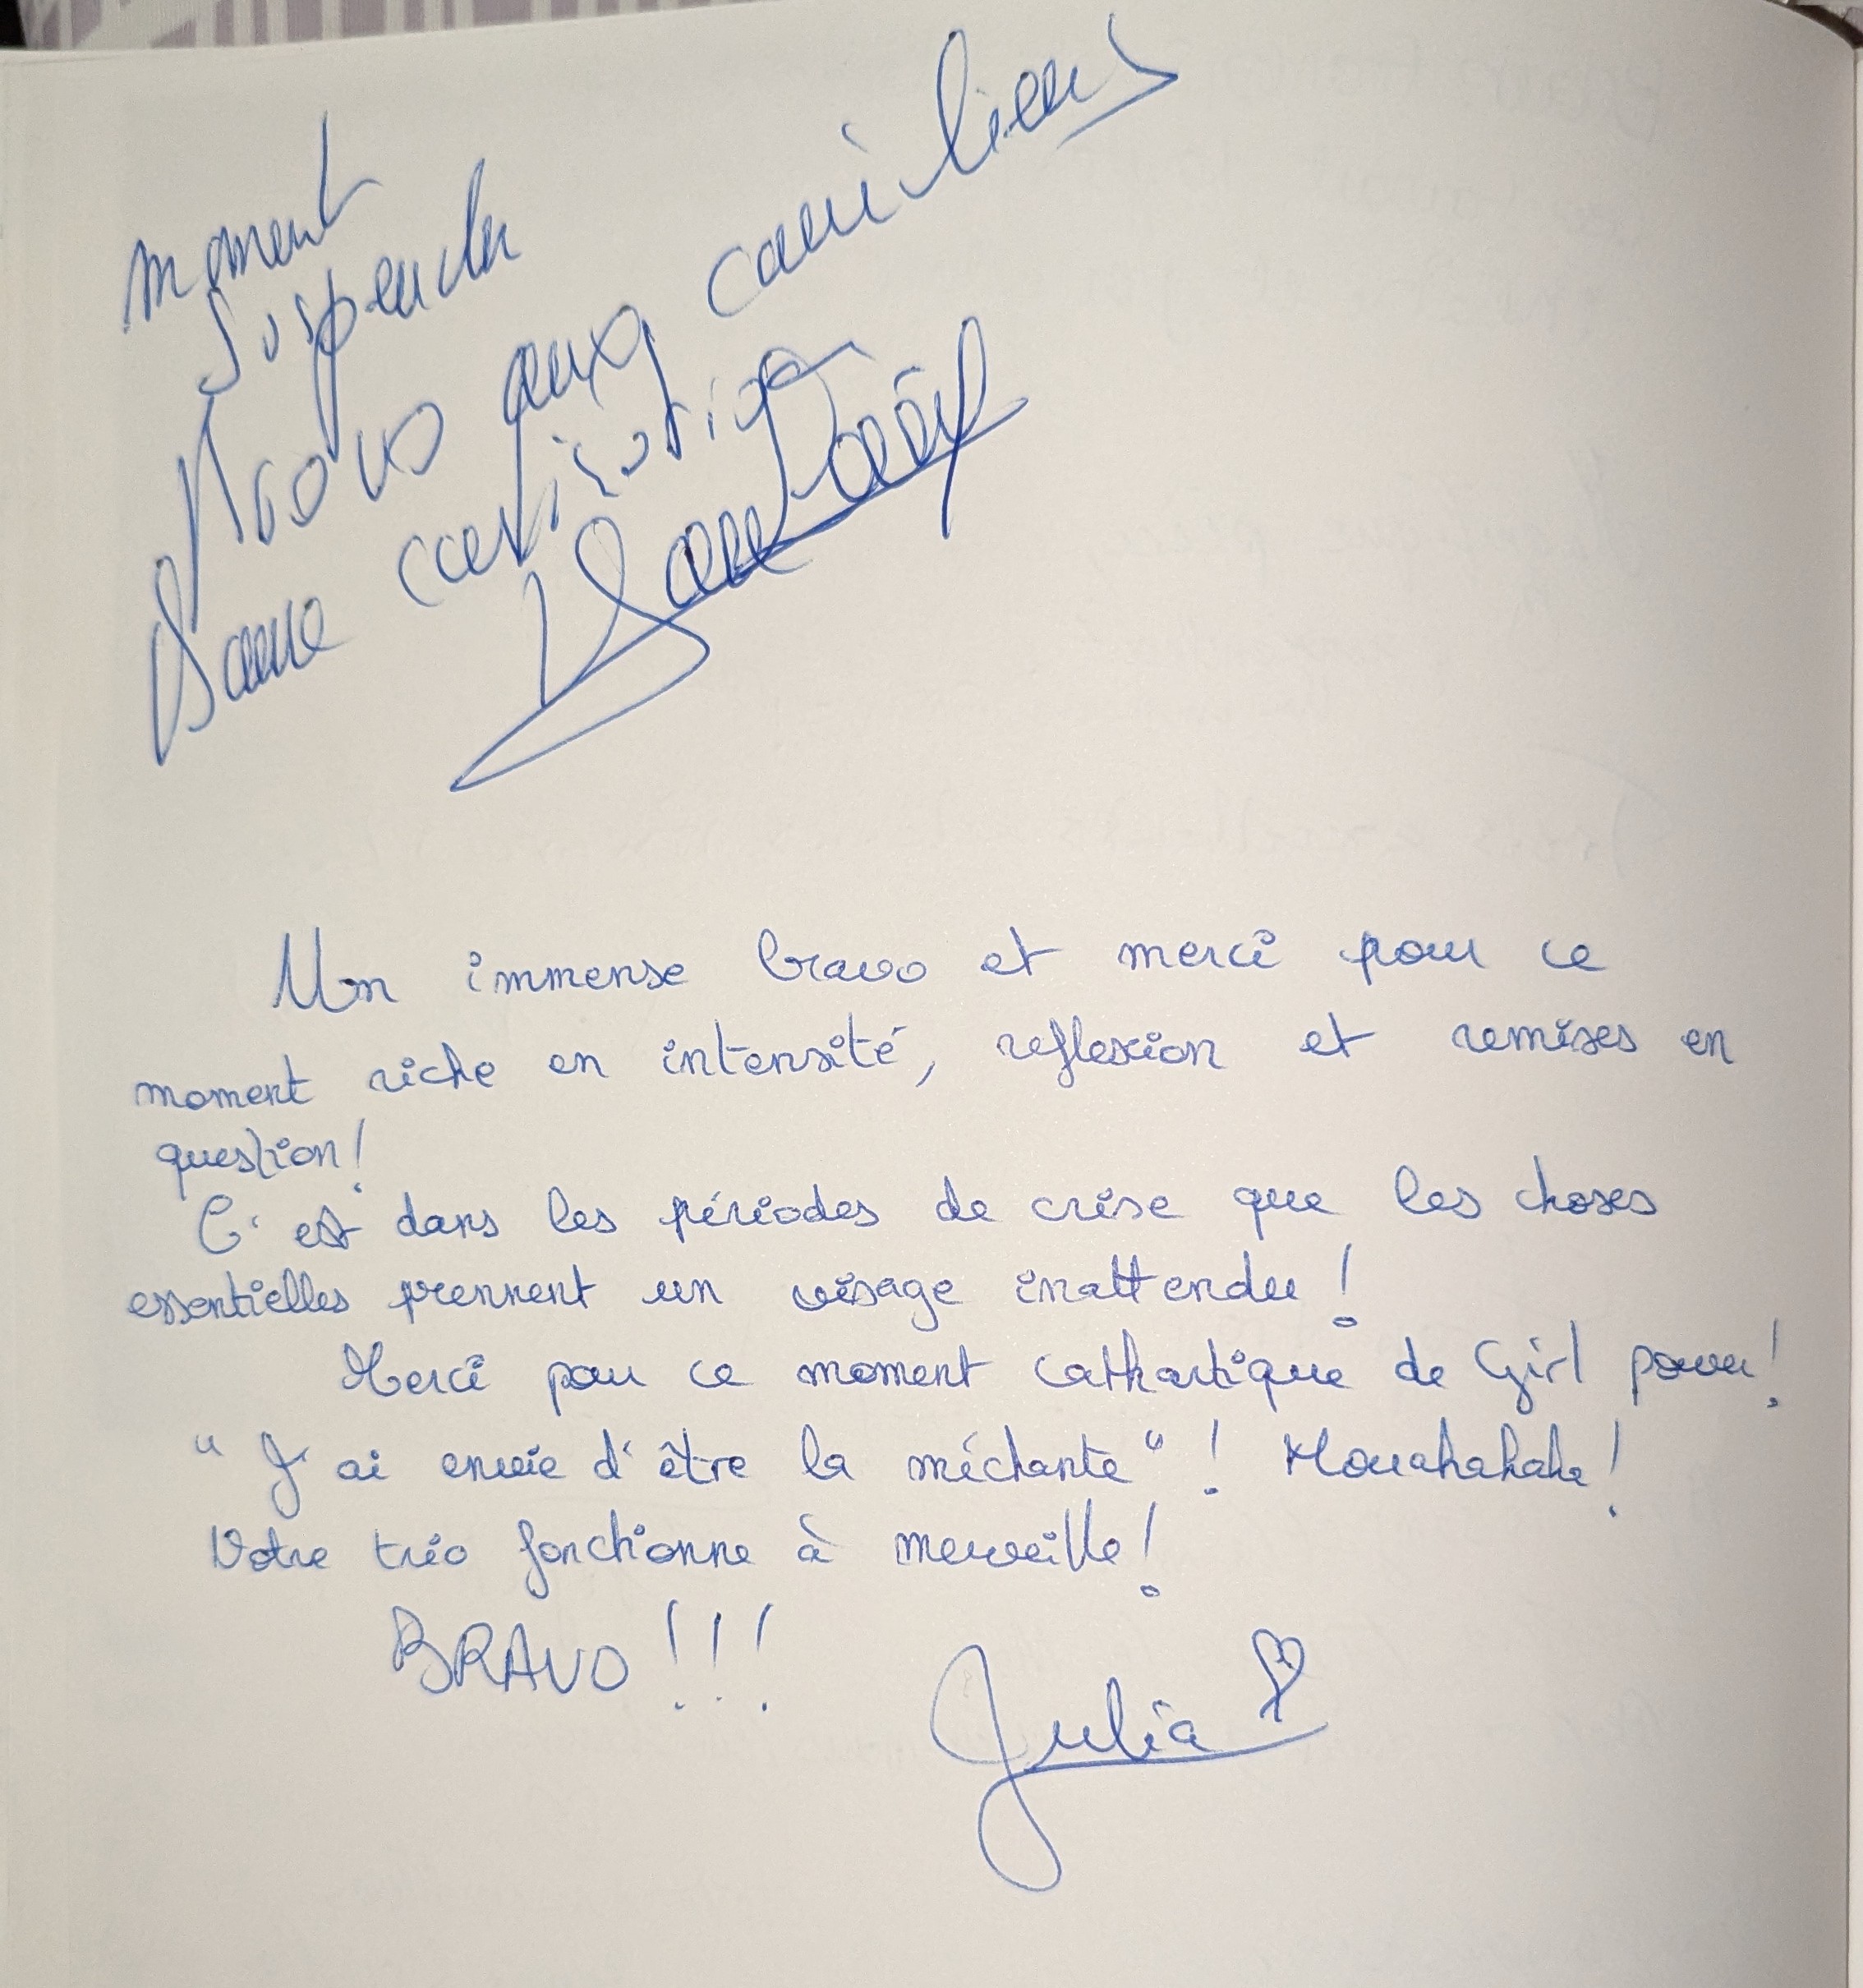 moment
suspendu
Bravo aux comédiens
Un immense bravo et merci pour ce
moment riche en intensité, reflexion et remises en
question!
C'est dans les périodes de crise que les choses
essentielles prennent un visage inattendu!
Merci pour ce moment cathartique de Girl power!
"J'ai envie d'être la méchante"! Mouahahaha!
Votre trio fonctionne à merveille!
BRAVO!!!
Julia